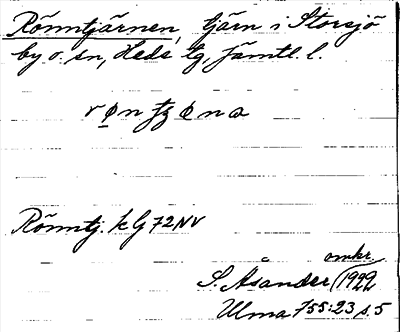 Rönntjärnen, tjärn i Storsjö
by o. sn, Heds tg, Jämtl. l.
Rönntj. k G 72 NV
omkr.
S. Åsander (1922)
Ulma 755:23 s. 5